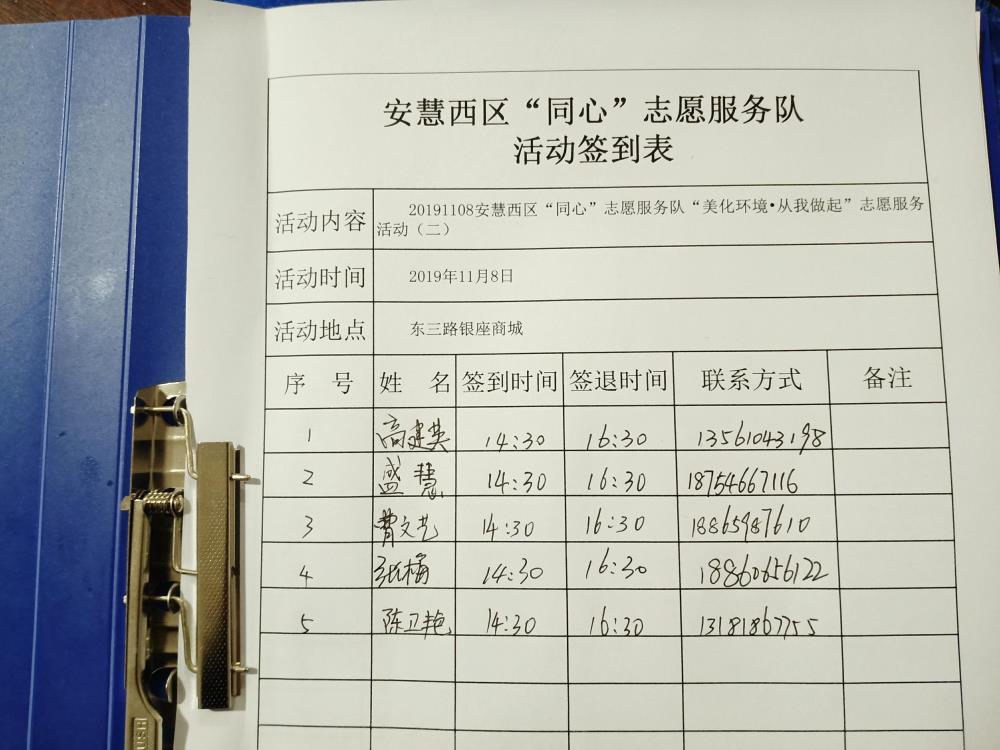 安慧西区“同心”志愿服务队
活动签到表
活动内容 20191108安慧西区“同心”志愿服务队“美化环境•从我做起”志愿服务
活动（二）
活动时间 2019年11月8日
活动地点 东三路银座商城
序 号 姓 名 签到时间 签退时间 联系方式 备注
1 高建英 14:30 16:30 13561043198
2 盛慧 14:30 16:30 18754667116
3 曹文艺 14:30 16:30 18865987610
4 张梅 14:30 16:30 18860656122
5 陈卫艳 14:30 16:30 13181867755